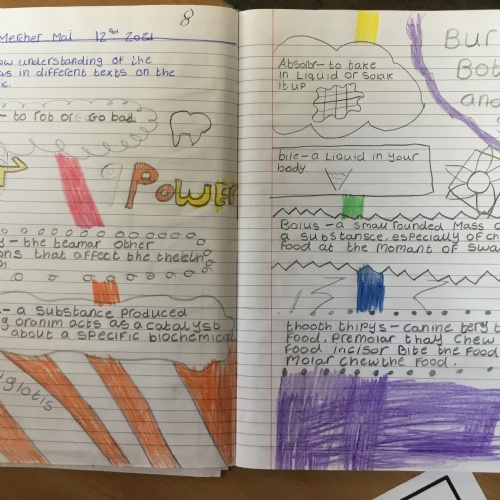 8
Mercher Mai 12th 2021
ow understanding of the
as in different texts on the
k.
- to rot or Go bad
POWER
y - the teamar other
ons that affect the
- a substance produced
g oranim acts as a catalyst
about a specific biochemical
iglotis
Bur
Bot
and
Absobr - to take
in Liquid or Soak
it up
bile - a Liquid in your
body
Bolus - a small rounded Mass o
a substansce, especially of ch
food at the Momant of Swa
thooth thipys - canine tery b
Food, Premolar thay chew
Food incisor Bite the Food
Molar chew the Food.